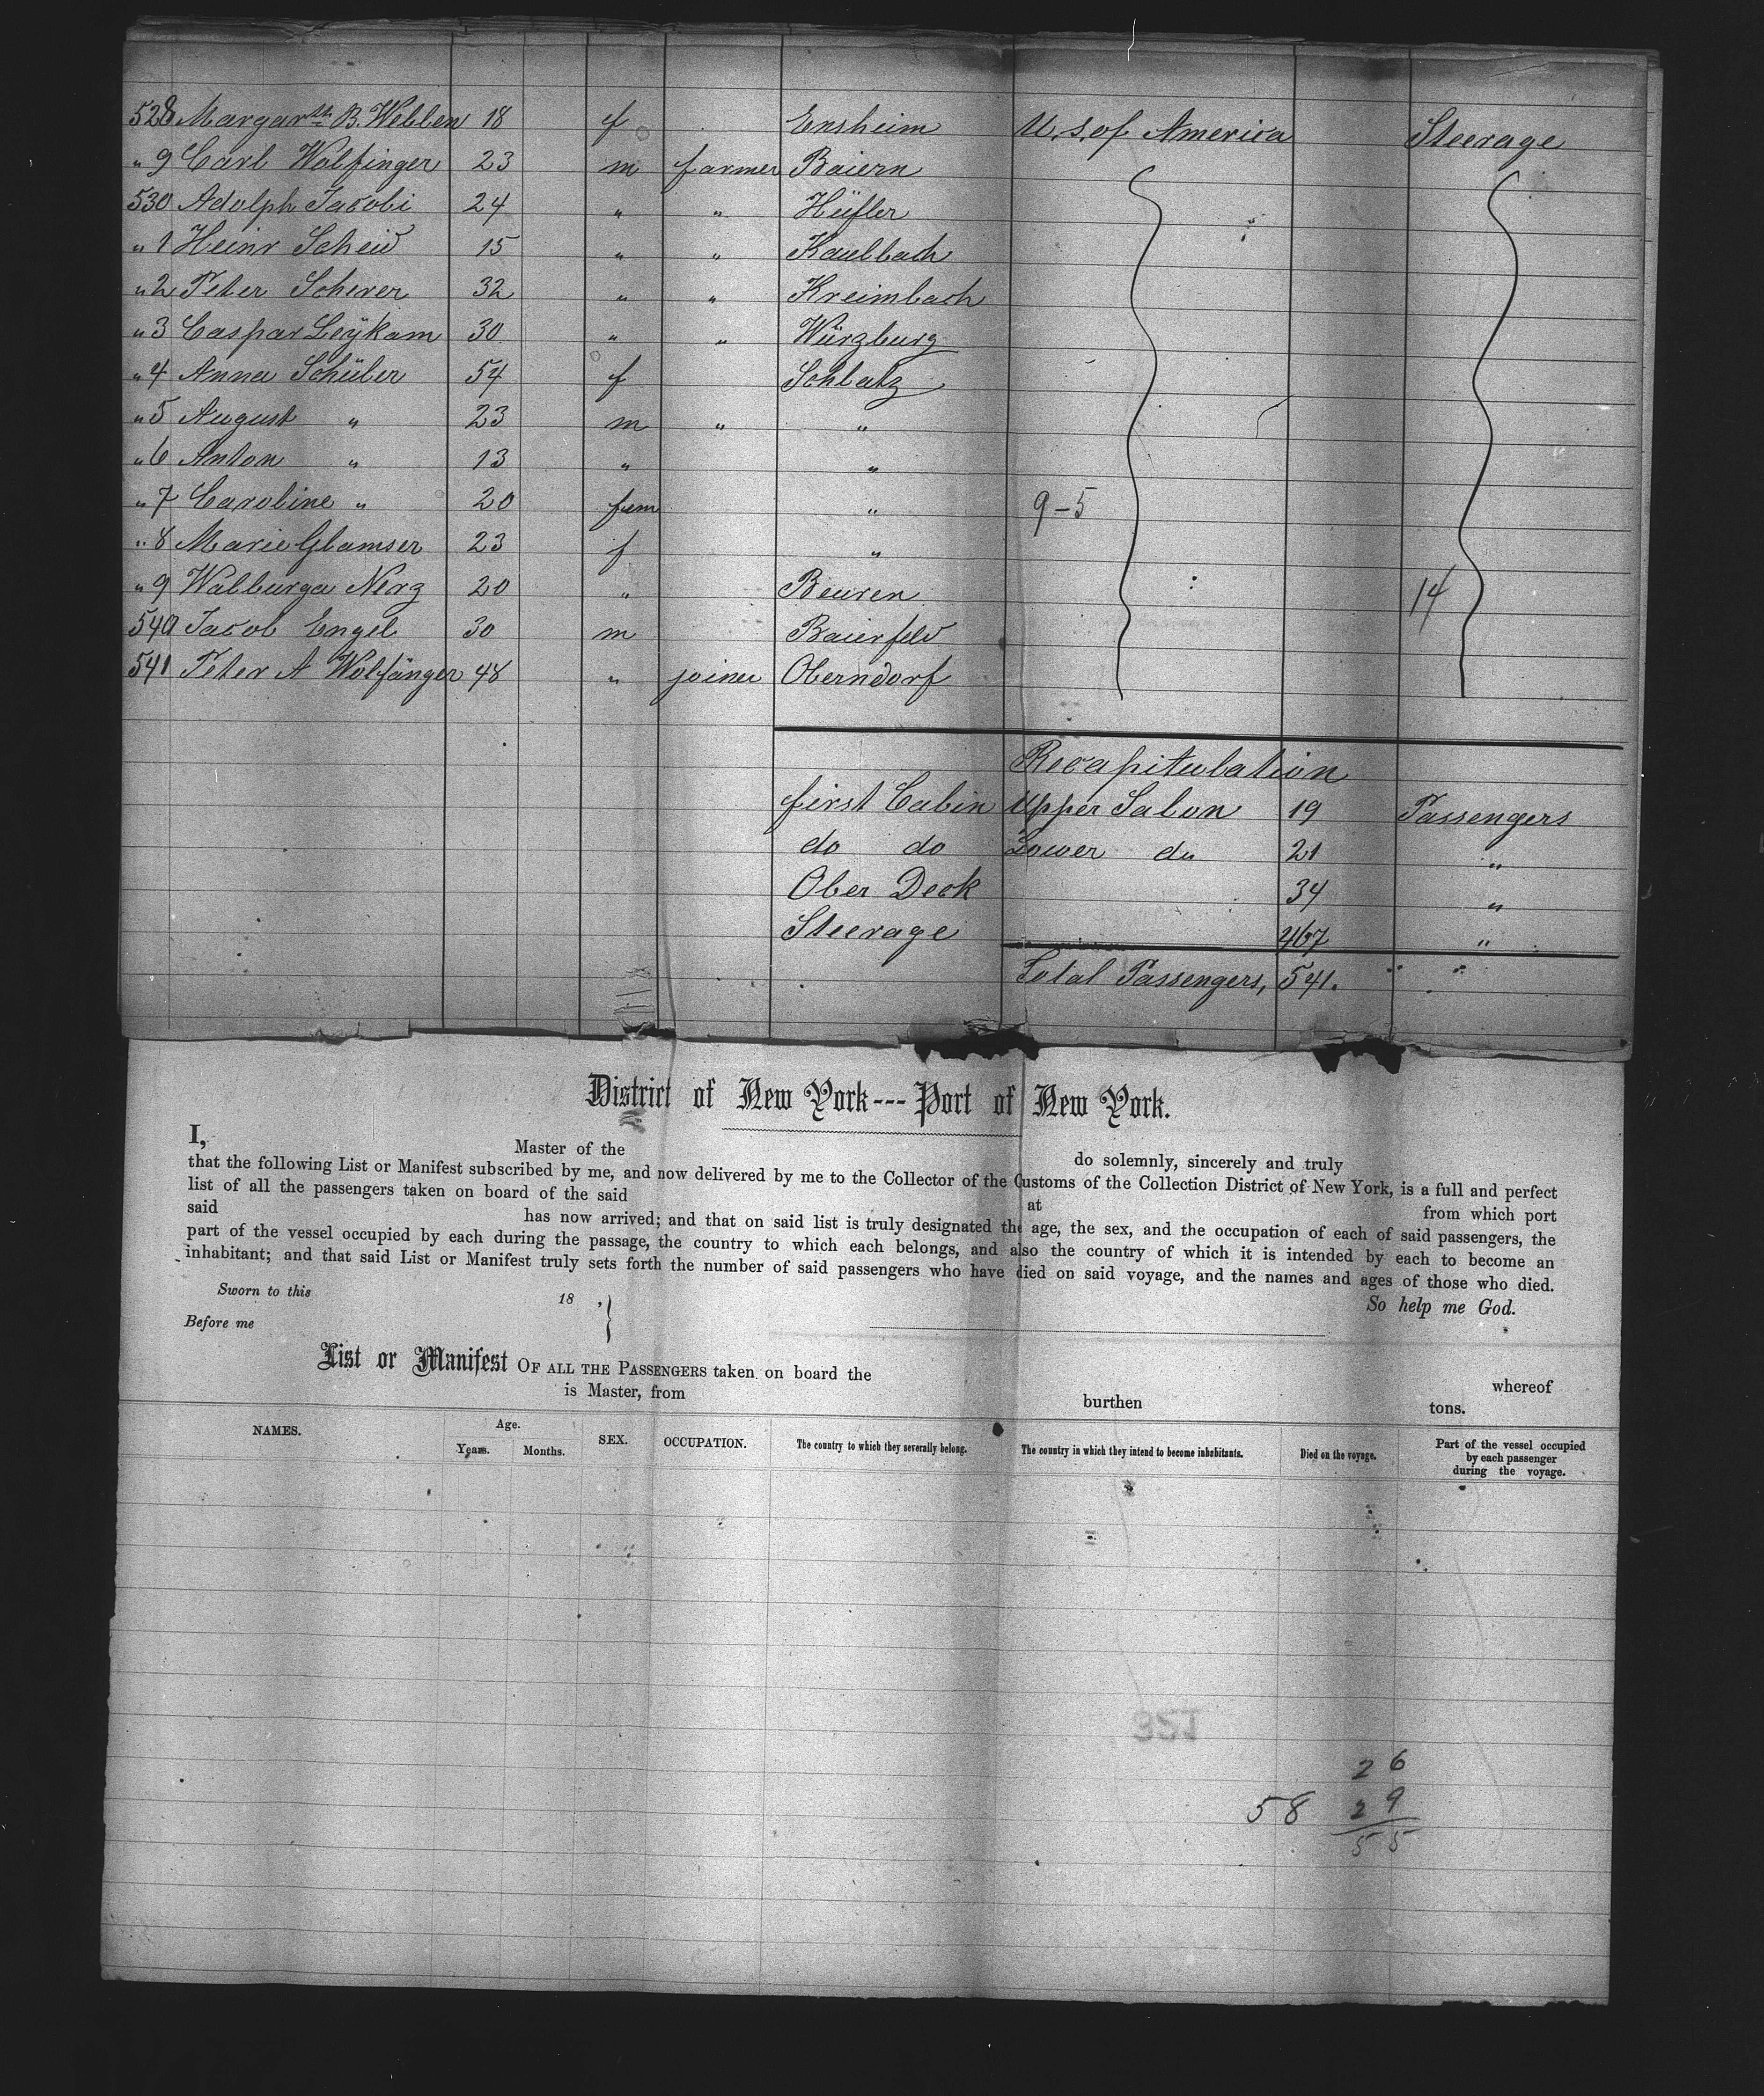 528 Margarth B. Webben 18 f Ensheim U.S. of America Steerage
" 9 Carl Wolfinger 23 m farmer Baiern
530 Adolph Jacobi 24 " " Hüfler
" 1 Heinr Scheid 15 " " Kaulbach
" 2 Peter Scherer 32 " " Kreimbach
" 3 Caspar Leÿkam 30 " " Würzburg
" 4 Anna Schüler 54 f Schlatz
" 5 August " 23 m " "
" 6 Anton " 13 " "
" 7 Caroline " 20 fem " 9-5
" 8 Marie Glamser 23 f "
" 9 Walburga Nerz 20 " Beuren 14
540 Jacob Engel 30 m Baierfeld
541 Peter A Wolfänger 48 " joiner Oberndorf
Recapitulation
first Cabin Upper Salon 19 Passengers
do do Lower do 21 "
Ober Deck 34 "
Steerage 467 "
Total Passengers, 541. "
District of New York --- Port of New York.
I, Master of the do solemnly, sincerely and truly
that the following List or Manifest subscribed by me, and now delivered by me to the Collector of the Customs of the Collection District of New York, is a full and perfect
list of all the passengers taken on board of the said at from which port
said has now arrived; and that on said list is truly designated the age, the sex, and the occupation of each of said passengers, the
part of the vessel occupied by each during the passage, the country to which each belongs, and also the country of which it is intended by each to become an
inhabitant; and that said List or Manifest truly sets forth the number of said passengers who have died on said voyage, and the names and ages of those who died.
Sworn to this 18 , } So help me God.
Before me
List or Manifest OF ALL THE PASSENGERS taken on board the whereof
is Master, from burthen tons.
NAMES. Age. Years. Months. SEX. OCCUPATION. The country to which they severally belong. The country in which they intend to become inhabitants. Died on the voyage. Part of the vessel occupied by each passenger during the voyage.
26
58 29
55